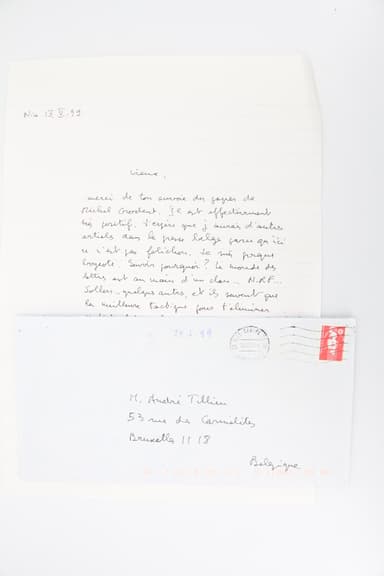 Nice 13 V 99
Vieux,
merci de ton envoi des pages de
Michel Grodent. Il est effectivement
très positif. J'espère que j'aurai d'autres
articles dans la presse belge parce qu'ici
ce n'est pas folichon. Je suis presque
Savoir pourquoi ? Le monde des
lettres est aux mains d'un clan... N.R.F...
Sollers... quelques autres, et ils savent que
la meilleure tactique pour t'éliminer
M. André Tillieu
53 rue des Carmélites
Bruxelles 1118
Belgique